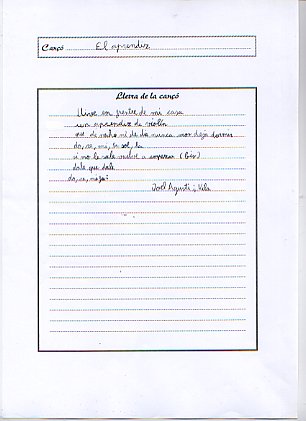 Cançó El aprendiz
Lletra de la cançó
Vive en frente de mi casa
un aprendiz de violín
que de noche ni de día nunca nos deja dormir
do, re, mi, fa sol, la
si no le sale vuelve a empezar (Bis)
dale que dale
do, re, mi, fa
Joel Agustí i Vila